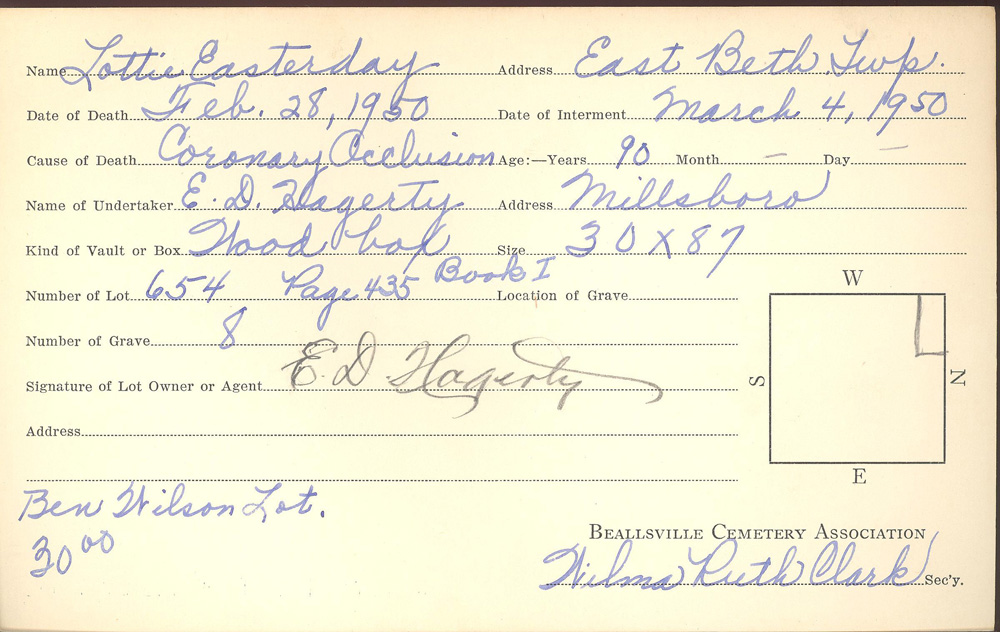 Name Lottie Easterday Address East Beth. Twp.
Date of Death Feb. 28, 1950 Date of Interment March 4, 1950
Cause of Death Coronary Occlusion Age:—Years 90 Month – Day –
Name of Undertaker E. D. Hagerty Address Millsboro
Kind of Vault or Box Wood box Size 30 X 87
Number of Lot 654 Page 435 Book I Location of Grave
W
Number of Grave 8
Signature of Lot Owner or Agent E. D. Hagerty
S N
Address
E
Ben Wilson Lot.
30 00
BEALLSVILLE CEMETERY ASSOCIATION
Wilma Ruth Clark Sec'y.